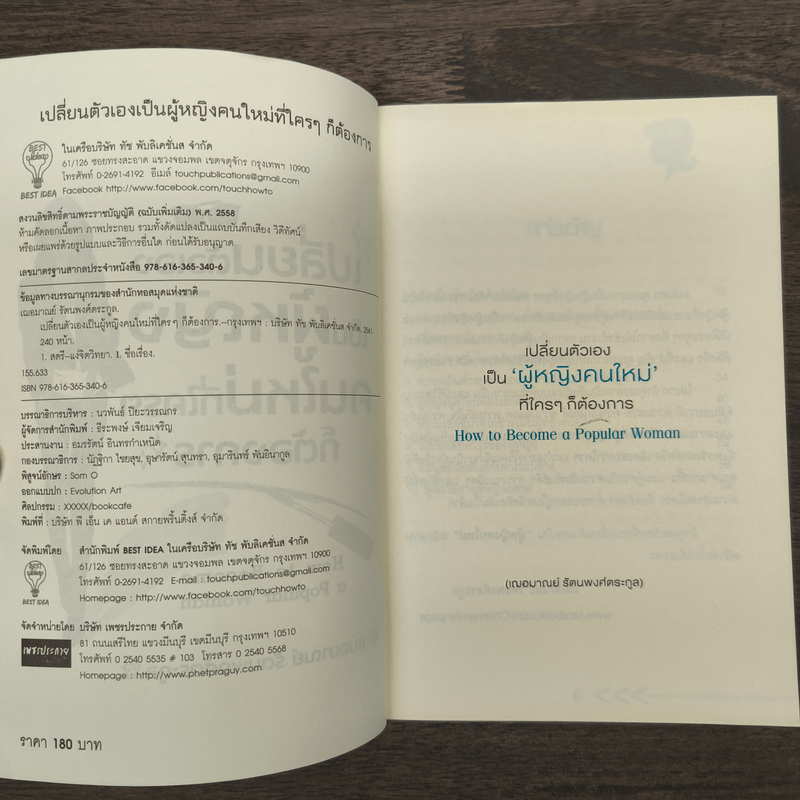 เปลี่ยนตัวเองเป็นผู้หญิงคนใหม่ที่ใครๆ ก็ต้องการ
BEST
idea
BEST IDEA
ในเครือบริษัท ทัช พับลิเคชั่นส จำกัด
61/126 ซอยทรงสะอาด แขวงจอมพล เขตจตุจักร กรุงเทพฯ 10900
โทรศัพท์ 0-2691-4192 อีเมล์ touchpublications@gmail.com
Facebook http://www.facebook.com/touchhowto
สงวนลิขสิทธิ์ตามพระราชบัญญัติ (ฉบับเพิ่มเติม) พ.ศ. 2558
ห้ามคัดลอกเนื้อหา ภาพประกอบ รวมทั้งดัดแปลงเป็นแถบบันทึกเสียง วิดีทัศน์
หรือเผยแพร่ด้วยรูปแบบและวิธีการอื่นใด ก่อนได้รับอนุญาต
เลขมาตรฐานสากลประจำหนังสือ 978-616-365-340-6
ข้อมูลทางบรรณานุกรมของสำนักหอสมุดแห่งชาติ
เฌอมาณย์ รัตนพงศ์ตระกูล.
เปลี่ยนตัวเองเป็นผู้หญิงคนใหม่ที่ใครๆ ก็ต้องการ.--กรุงเทพฯ : บริษัท ทัช พับลิเคชั่นส จำกัด,
240 หน้า.
1. สตรี--แง่จิตวิทยา. I. ชื่อเรื่อง.
155.633
ISBN 978-616-365-340-6
บรรณาธิการบริหาร : นวพันธ์ ปิยะวรรณกร
ผู้จัดการสำนักพิมพ์ : ธีระพงษ์ เจียมเจริญ
ประสานงาน : อมรรัตน์ อินทรกำเหนิด
กองบรรณาธิการ : นัฏฐิกา ไชยสุข, อุษารัตน์ สุนทรา, อุมารินทร์ พันอินากูล
พิสูจน์อักษร : Som O
ออกแบบปก : Evolution Art
ศิลปกรรม : XXXXX/bookcafe
พิมพ์ที่ : บริษัท พี เอ็น เค แอนด์ สกายพริ้นติ้งส์ จำกัด
จัดพิมพ์โดย
BEST
idea
BEST IDEA
สำนักพิมพ์ BEST IDEA ในเครือบริษัท ทัช พับลิเคชั่นส จำกัด
61/126 ซอยทรงสะอาด แขวงจอมพล เขตจตุจักร กรุงเทพฯ 10900
โทรศัพท์ 0-2691-4192 E-mail : touchpublications@gmail.com
Homepage : http://www.facebook.com/touchhowto
จัดจำหน่ายโดย บริษัท เพชรประกาย จำกัด
เพชรประกาย
81 ถนนเสรีไทย แขวงมีนบุรี เขตมีนบุรี กรุงเทพฯ 10510
โทรศัพท์ 0 2540 5535 # 103 โทรสาร 0 2540 5568
Homepage : http://www.phetpraguy.com
ราคา 180 บาท
เปลี่ยนตัวเอง
เป็น 'ผู้หญิงคนใหม่'
ที่ใครๆ ก็ต้องการ
How to Become a Popular Woman
(เฌอมาณย์ รัตนพงศ์ตระกูล)